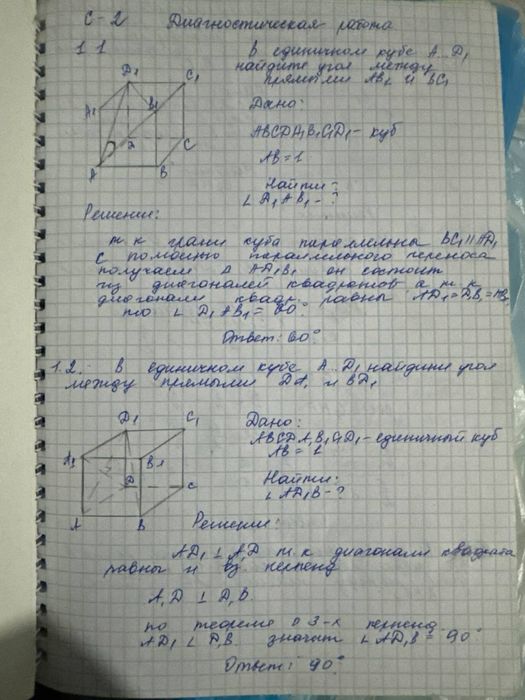 С-2 Диагностическая работа
1.1 В единичном кубе A...D₁
найдите угол между
прямыми AB₁ и BC₁
D₁ C₁
A₁ B₁
D C
A B
Дано:
ABCDA₁B₁C₁D₁ - куб
AB = 1
Найти:
∠ D₁AB₁ - ?
Решении:
т.к грани куба параллельны BC₁ || AD₁
с помощью параллельного переноса
получаем Δ AD₁B₁ он состоит
из диагоналей квадратов а т.к
диагонали квадр. равны AD₁ = DB₁ = AB₁
то ∠ D₁AB₁ = 60°
Ответ: 60°
1.2. В единичном кубе A...D₁ найдите угол
между прямыми DA₁ и BD₁
D₁ C₁
A₁ B₁
D C
A B
Дано:
ABCDA₁B₁C₁D₁ - единичный куб
AB = 1
Найти:
∠ AD₁B - ?
Решении:
AD₁ ⊥ A₁D т.к диагонали квадрата
равны и вз. перпенд
A₁D ⊥ D₁B
по теореме о 3-х перпенд.
AD₁ ⊥ D₁B значит ∠ AD₁B = 90°
Ответ: 90°